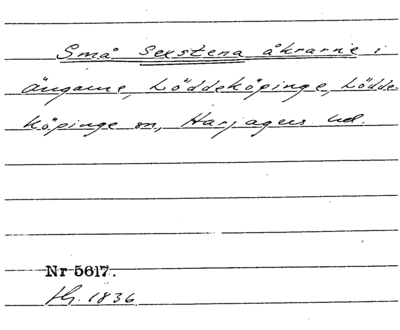 Små Sexstena åkrarne i
ängarne, Löddeköpinge, Lödde-
köpinge sn, Harjagers hd.
Nr 5617.
1836